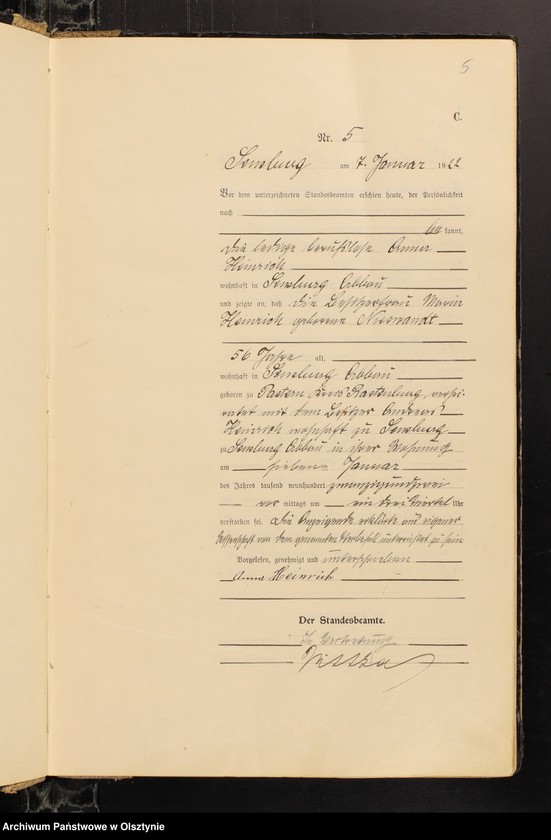 5
C.
Nr. 5
Sensburg am 7. Januar 1922
Vor dem unterzeichneten Standesbeamten erschien heute, der Persönlichkeit
nach
be kannt,
die ledige berufslose Anna
Heinrich
wohnhaft in Sensburg Abbau
und zeigte an, daß die Besitzerfrau Marie
Heinrich geborene Nieswandt
56 Jahre alt,
wohnhaft in Sensburg Abbau
geboren zu Pastern Kreis Rastenburg, verhei-
ratet mit dem Besitzer Andreas
Heinrich wohnhaft zu Sensburg
zu Sensburg Abbau in ihrer Wohnung
am sieben ten Januar
des Jahres tausend neunhundert zwanzigundzwei
vor mittags um ein drei Viertel Uhr
verstorben sei. Die Anzeigende erklärte aus eigener
Wissenschaft von dem genannten Sterbefall unterrichtet zu sein
Vorgelesen, genehmigt und unterschrieben
Anna Heinrich
Der Standesbeamte.
In Vertretung
Archiwum Państwowe w Olsztynie